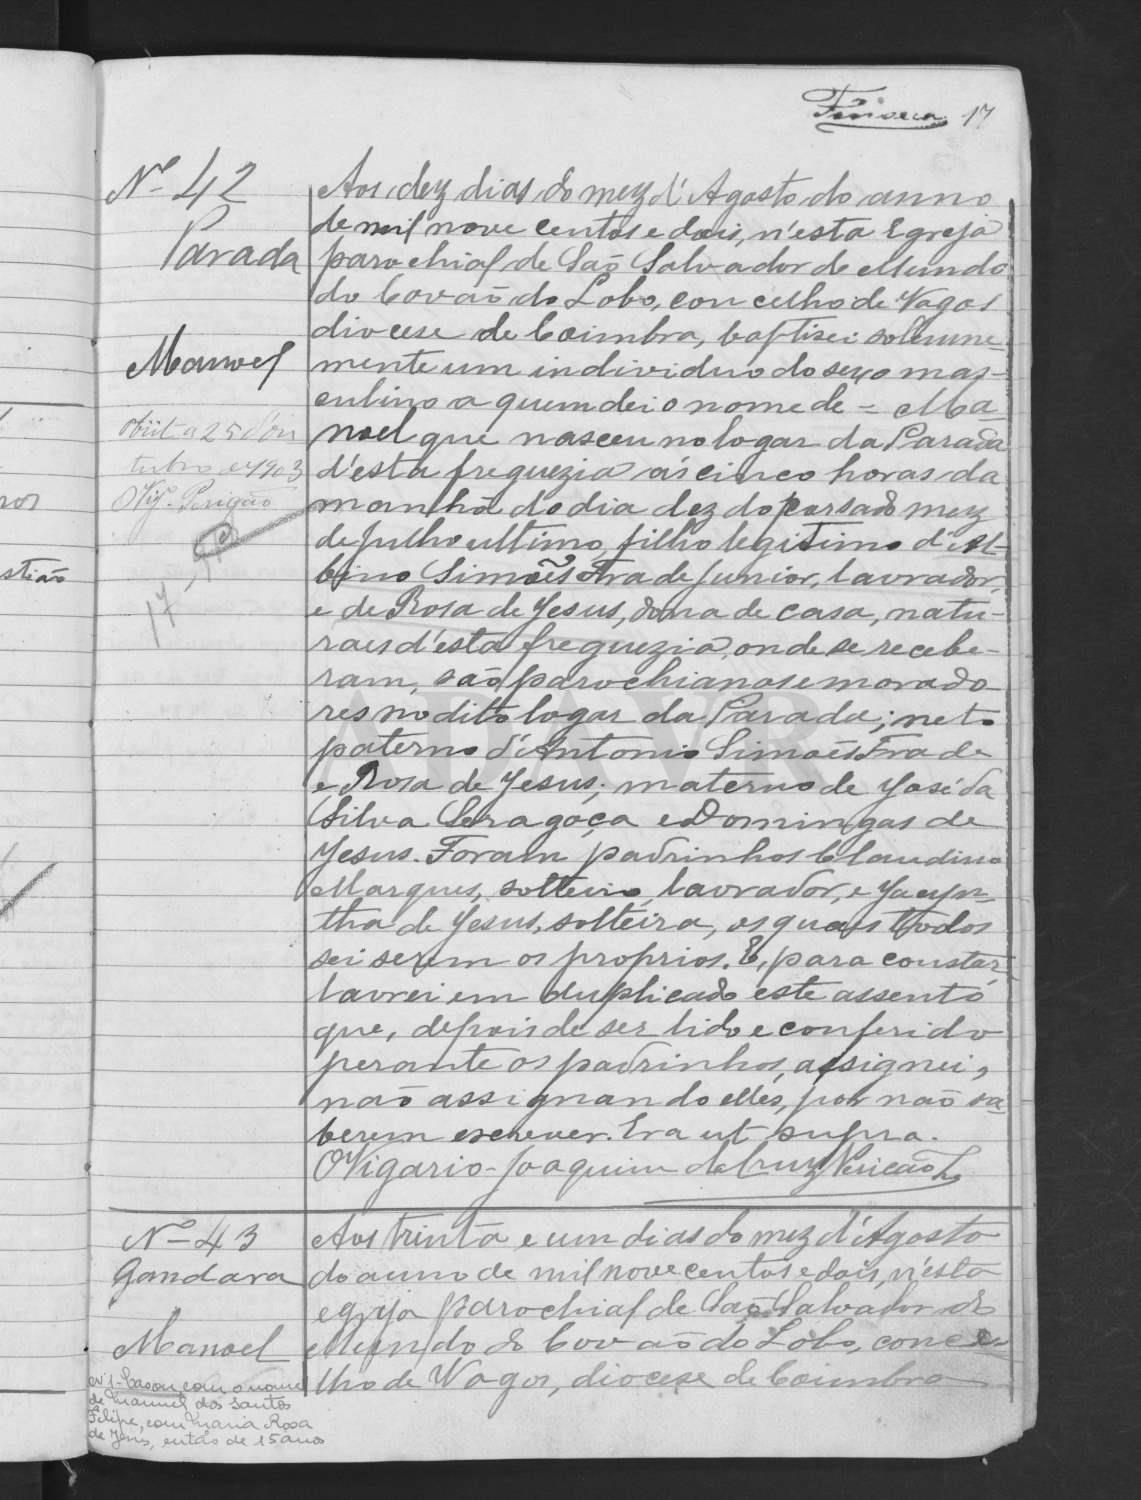 Fonseca 17
Nº 42
Parada
Manoel
Obiit a 25 d'ou
tubro de 1903
O Vigº. Perigão
17
Aos dez dias do mez d'Agosto do anno
de mil nove centos e dois, n'esta Egreja
parochial de São Salvador do Mundo
do Covão do Lobo, concelho de Vagos
diocese de Coimbra, baptisei solemne-
mente um individuo do sexo mas-
culino a quem dei o nome de = Ma
noel que nasceu no logar da Parada
d'esta freguezia ás cinco horas da
manhã do dia dez do passado mez
de julho ultimo, filho legitimo d'Al-
bino Simões Frade Junior, lavrador,
e de Rosa de Jesus, dona de casa, natu-
raes d'esta freguezia, onde se recebe-
ram, são parochianos e morado
res no dito logar da Parada; neto
paterno d'Antonio Simões Frade
e Rosa de Jesus; materno de José da
Silva Seragoça e Domingas de
Jesus. Foram padrinhos Claudino
Marques, solteiro, lavrador, e Jacyn-
tha de Jesus, solteira, os quaes todos
sei serem os proprios. E, para constar,
lavrei em duplicado este assento
que, depois de ser lido e conferido
perante os padrinhos, assignei,
não assignando elles, por não sa-
berem escrever. Era ut supra.
O Vigario - Joaquim da Cruz Pericão
Nº 43
Gandara
Manoel
Nº 1 - Casou com o nome
de Manuel dos Santos
Felipe, com Maria Rosa
de Jesus, então de 15 anos
Aos trinta e um dias do mez d'Agosto
do anno de mil nove centos e dois, n'esta
egreja parochial de São Salvador do
Mundo do Covão do Lobo, conce-
lho de Vagos, diocese de Coimbra
nos
stião
ADAVR